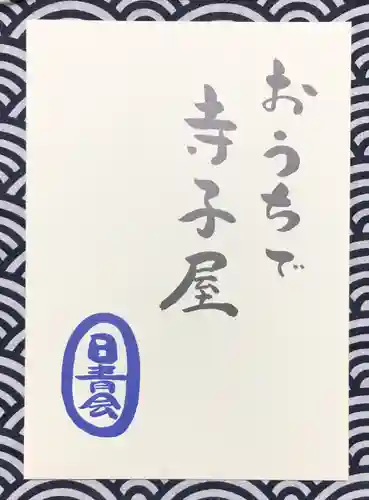 おうちで
寺子屋
日青会